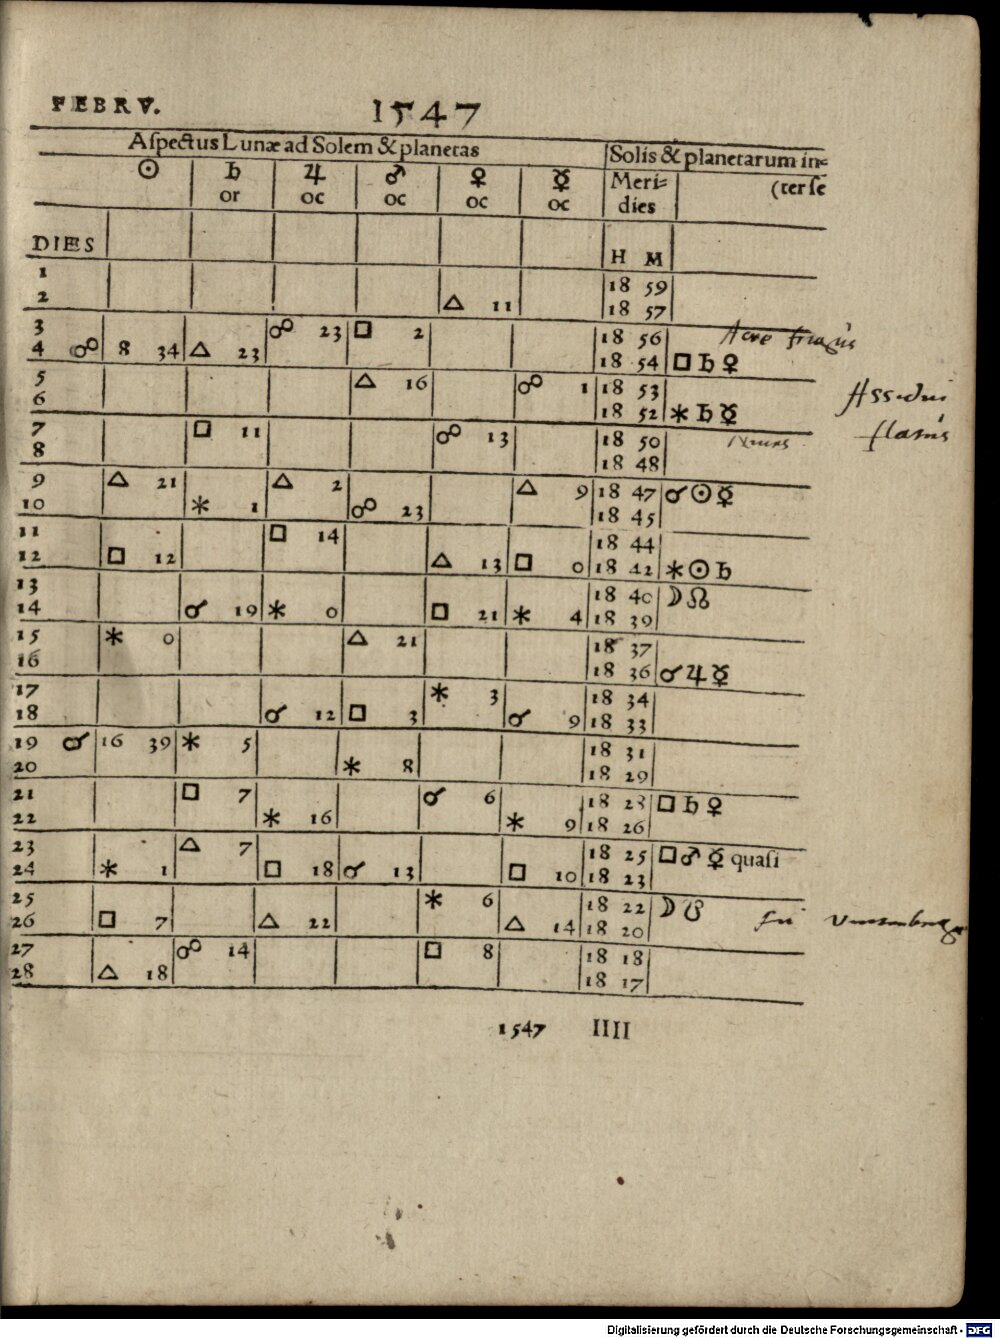 FEBRV. 1547
Aſpectus Lunæ ad Solem & planetas Solis & planetarum in=
☉ ♄ ♃ ♂ ♀ ☿ Meri= (ter ſe
or oc oc oc oc dies
DIES H M
1 18 59
2 △ 11 18 57
3 ☍ 23 □ 2 18 56
4 ☍ 8 34 △ 23 18 54 □ ♄ ♀
5 △ 16 ☍ 1 18 53
6 18 52 ⚹ ♄ ☿
7 □ 11 ☍ 13 18 50
8 18 48
9 △ 21 △ 2 △ 9 18 47 ☌ ☉ ☿
10 ⚹ 1 ☍ 23 18 45
11 □ 14 18 44
12 □ 12 △ 13 □ 0 18 42 ⚹ ☉ ♄
13 18 40 ☽ ☊
14 ☌ 19 ⚹ 0 □ 21 ⚹ 4 18 39
15 ⚹ 0 △ 21 18 37
16 18 36 ☌ ♃ ☿
17 ⚹ 3 18 34
18 ☌ 12 □ 3 ☌ 9 18 33
19 ☌ 16 39 ⚹ 5 18 31
20 ⚹ 8 18 29
21 □ 7 ☌ 6 18 28 □ ♄ ♀
22 ⚹ 16 ⚹ 9 18 26
23 △ 7 18 25 □ ♂ ☿ quaſi
24 ⚹ 1 □ 18 ☌ 13 □ 10 18 23
25 ⚹ 6 18 22 ☽ ☋
26 □ 7 △ 22 △ 14 18 20
27 ☍ 14 □ 8 18 18
28 △ 18 18 17
1547 IIII
Digitalisierung gefördert durch die Deutsche Forschungsgemeinschaft - DFG